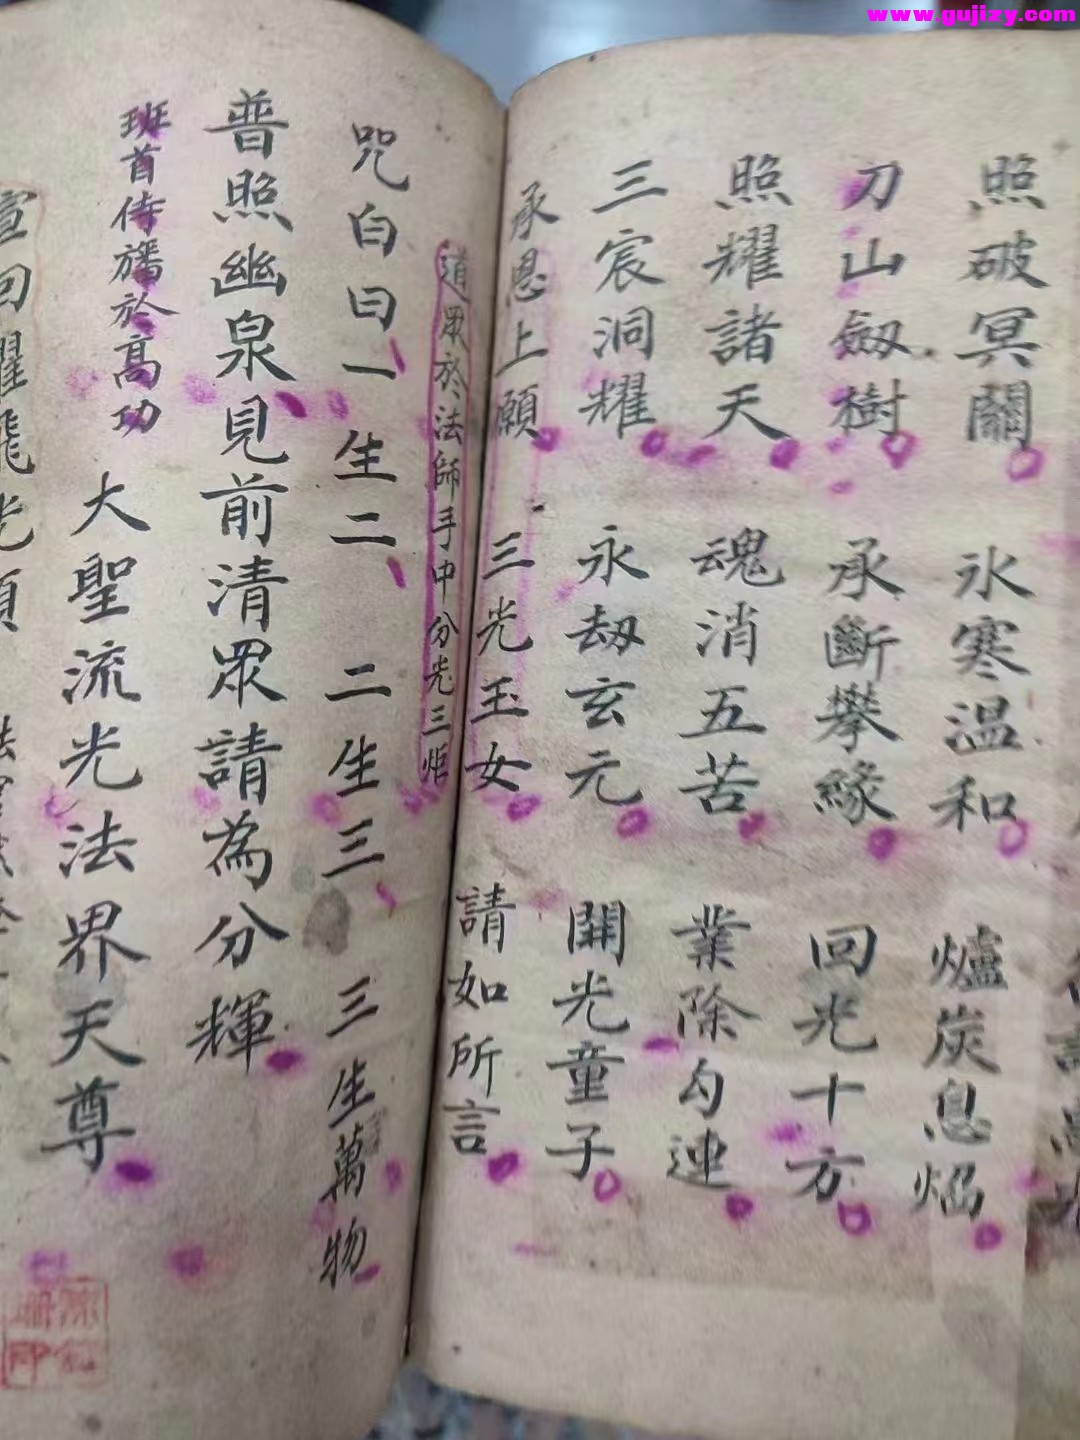 www.gujizy.com
照破冥關 氷寒温和 爐炭息焰
刀山劔樹 承斷攀緣 回光十方
照耀諸天 魂消五苦 業除勾連
三宸洞耀 永劫玄元 開光童子
承恩上願 三光玉女 請如所言
道眾於法師手中分光三炬
咒白曰一生二 二生三 三生萬物
普照幽泉見前清眾請為分輝
班首侍旛於高功 大聖流光法界天尊